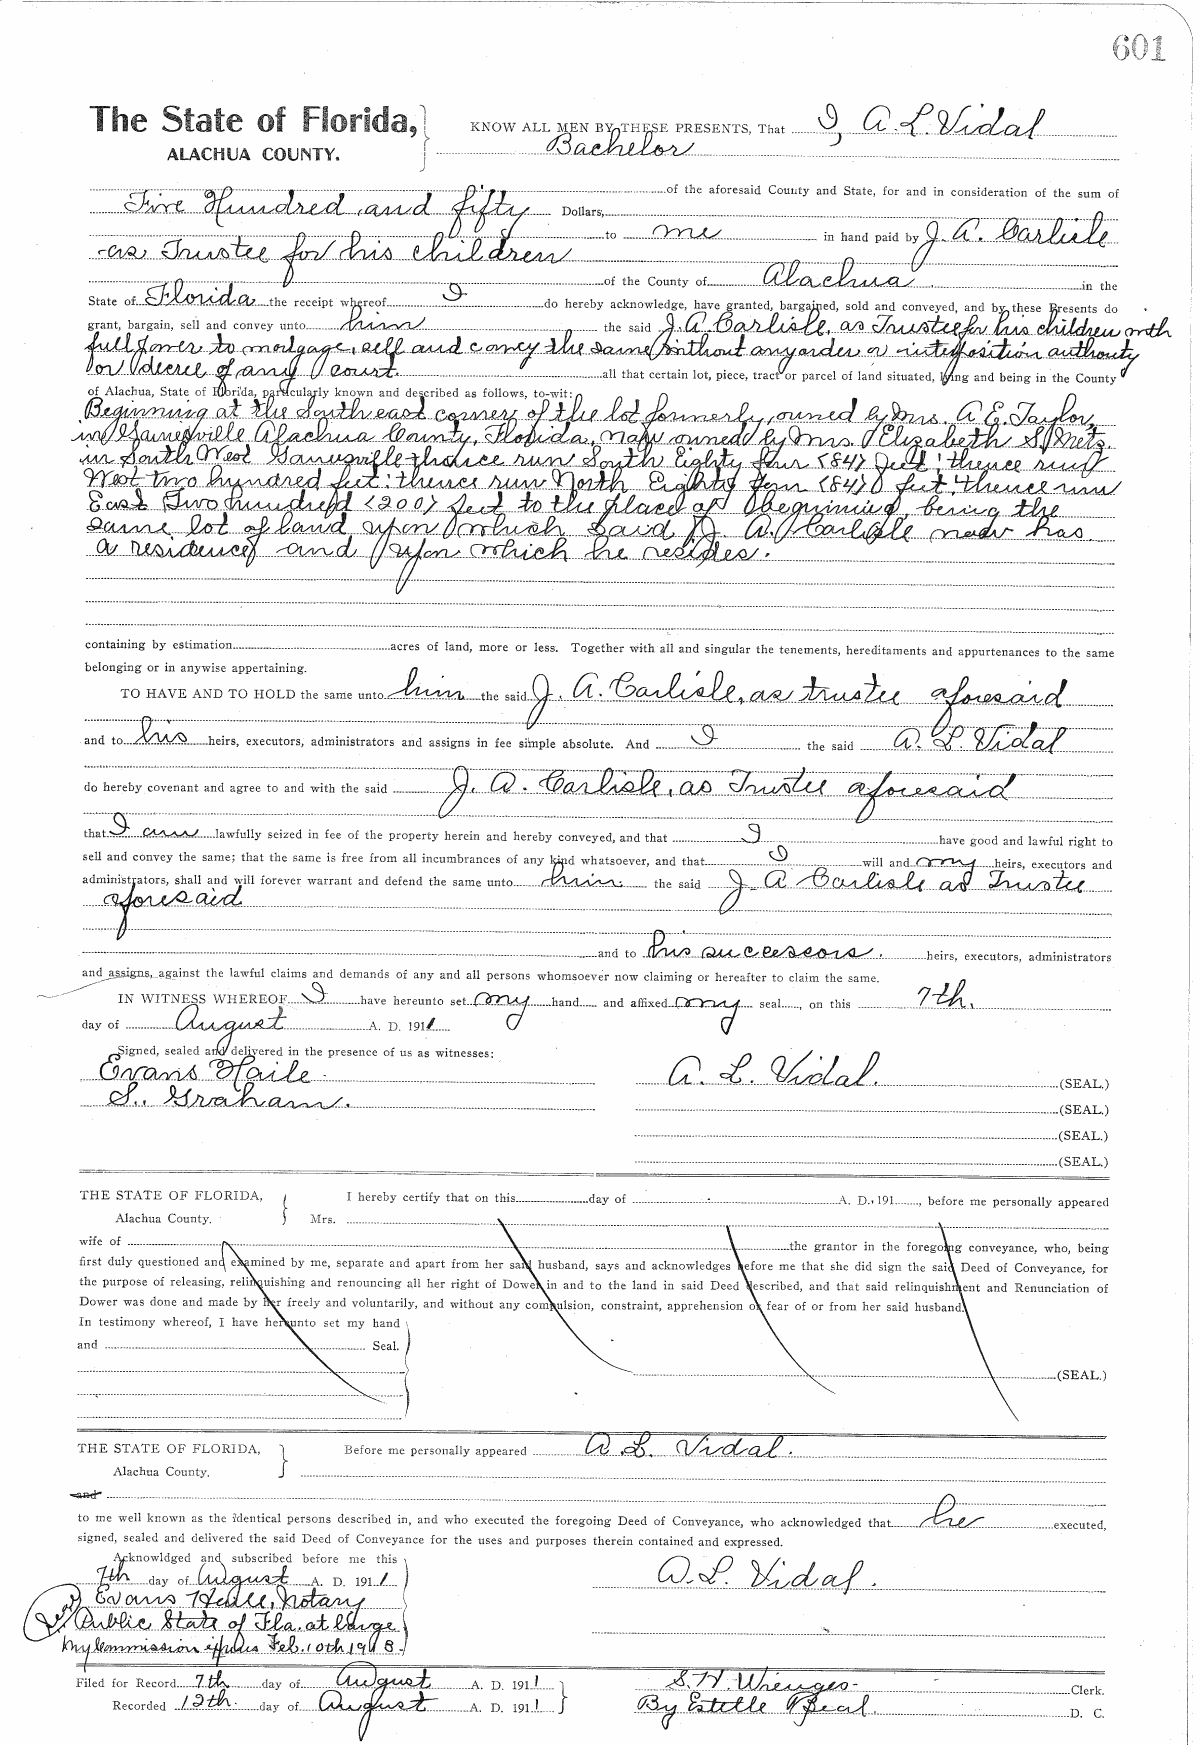 601
The State of Florida, KNOW ALL MEN BY THESE PRESENTS, That I, A. L. Vidal
ALACHUA COUNTY. Bachelor
of the aforesaid County and State, for and in consideration of the sum of
Five Hundred and fifty Dollars,
to me in hand paid by J. A. Carlisle
as Trustee for his children
of the County of Alachua in the
State of Florida the receipt whereof I do hereby acknowledge, have granted, bargained, sold and conveyed, and by these Presents do
grant, bargain, sell and convey unto him the said J. A. Carlisle, as Trustee for his children with
full power to mortgage, sell and convey the same without any order or interposition authority
or decree of any court. all that certain lot, piece, tract or parcel of land situated, lying and being in the County
of Alachua, State of Florida, particularly known and described as follows, to-wit:
Beginning at the South east corner of the lot formerly owned by Mrs. A. E. Taylor,
in Gainesville Alachua County, Florida, now owned by Mrs. Elizabeth S. Metz.
in South West Gainesville thence run South Eighty four (84) feet; thence run
West two hundred feet; thence run North Eighty four (84) feet; thence run
East Two hundred (200) feet to the place of beginning, being the
same lot of land upon which said J. A. Carlisle now has
a residence and upon which he resides.
containing by estimation acres of land, more or less. Together with all and singular the tenements, hereditaments and appurtenances to the same
belonging or in anywise appertaining.
TO HAVE AND TO HOLD the same unto him the said J. A. Carlisle, as trustee aforesaid
and to his heirs, executors, administrators and assigns in fee simple absolute. And I the said A. L. Vidal
do hereby covenant and agree to and with the said J. A. Carlisle, as Trustee aforesaid
that I am lawfully seized in fee of the property herein and hereby conveyed, and that I have good and lawful right to
sell and convey the same; that the same is free from all incumbrances of any kind whatsoever, and that I will and my heirs, executors and
administrators, shall and will forever warrant and defend the same unto him the said J. A Carlisle as Trustee
aforesaid
and to his successors. heirs, executors, administrators
and assigns, against the lawful claims and demands of any and all persons whomsoever now claiming or hereafter to claim the same.
IN WITNESS WHEREOF I have hereunto set my hand and affixed my seal, on this 7th.
day of August A. D. 1911
Signed, sealed and delivered in the presence of us as witnesses:
Evans Haile. A. L. Vidal. (SEAL.)
S. Graham. (SEAL.)
(SEAL.)
(SEAL.)
THE STATE OF FLORIDA, I hereby certify that on this day of A. D. 191 , before me personally appeared
Alachua County. Mrs.
wife of the grantor in the foregoing conveyance, who, being
first duly questioned and examined by me, separate and apart from her said husband, says and acknowledges before me that she did sign the said Deed of Conveyance, for
the purpose of releasing, relinquishing and renouncing all her right of Dower in and to the land in said Deed described, and that said relinquishment and Renunciation of
Dower was done and made by her freely and voluntarily, and without any compulsion, constraint, apprehension or fear of or from her said husband.
In testimony whereof, I have hereunto set my hand
and Seal.
(SEAL.)
THE STATE OF FLORIDA, Before me personally appeared A L. Vidal.
Alachua County.
and
to me well known as the identical persons described in, and who executed the foregoing Deed of Conveyance, who acknowledged that he executed,
signed, sealed and delivered the said Deed of Conveyance for the uses and purposes therein contained and expressed.
Acknowldged and subscribed before me this
7th day of August A. D. 1911 A. L. Vidal.
Evans Haile, Notary
Seal Public State of Fla. at large
My Commission expires Feb. 10th 1913.
Filed for Record 7th day of August A. D. 1911 S. H. Wienges- Clerk.
Recorded 12th. day of August A. D. 1911 By Estelle Beal. D. C.